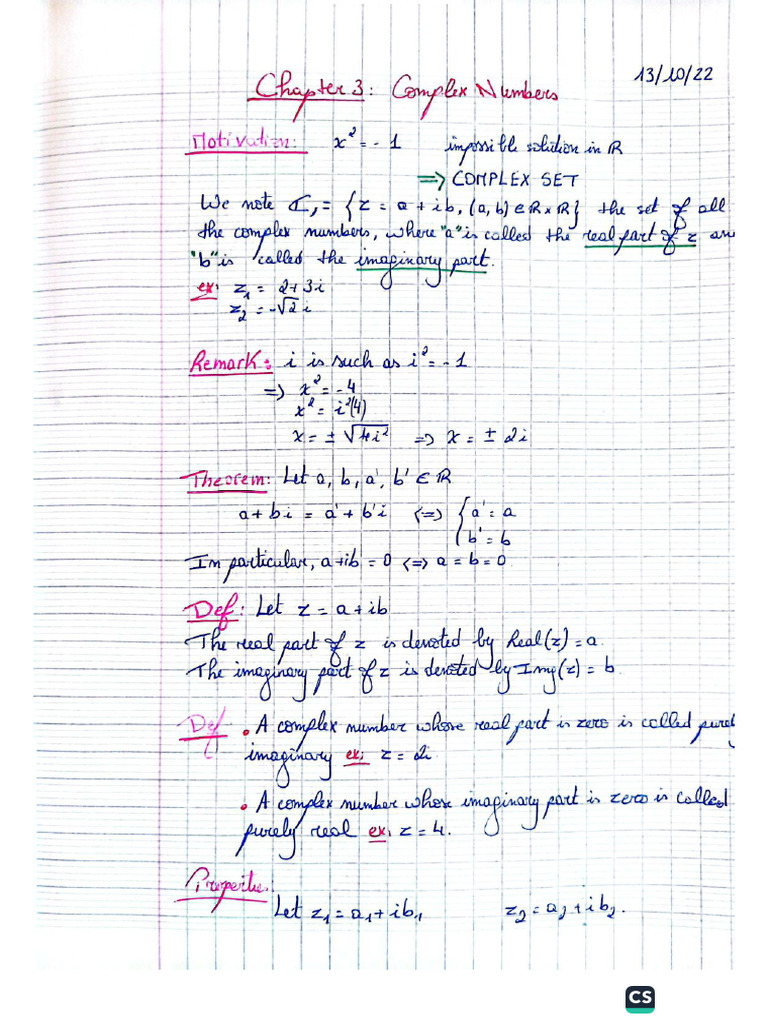 13/10/22
Chapter 3: Complex Numbers
Motivation: x² = -1 impossible solution in ℝ
⇒ COMPLEX SET
We note ℂ, = {z = a + ib, (a,b) ∈ ℝ×ℝ} the set of all
the complex numbers, where "a" is called the real part of z an
"b" is called the imaginary part.
ex: z₁ = 2+3i
z₂ = -√2 i
Remark: i is such as i² = -1
⇒ x² = -4
x² = i²(4)
x = ± √4i² ⇒ x = ± 2i
Theorem: Let a, b, a', b' ∈ ℝ
a + bi = a' + b'i ⇔ { a' = a
b' = b
In particular, a+ib = 0 ⇔ a = b = 0
Def: Let z = a + ib
The real part of z is denoted by Real(z) = a.
The imaginary part of z is denoted by Img(z) = b
Def • A complex number whose real part is zero is called purely
imaginary ex: z = 2i
• A complex number whose imaginary part is zero is called
purely real ex: z = 4.
Let z₁ = a₁ + ib₁ z₂ = a₂ + ib₂.
CS